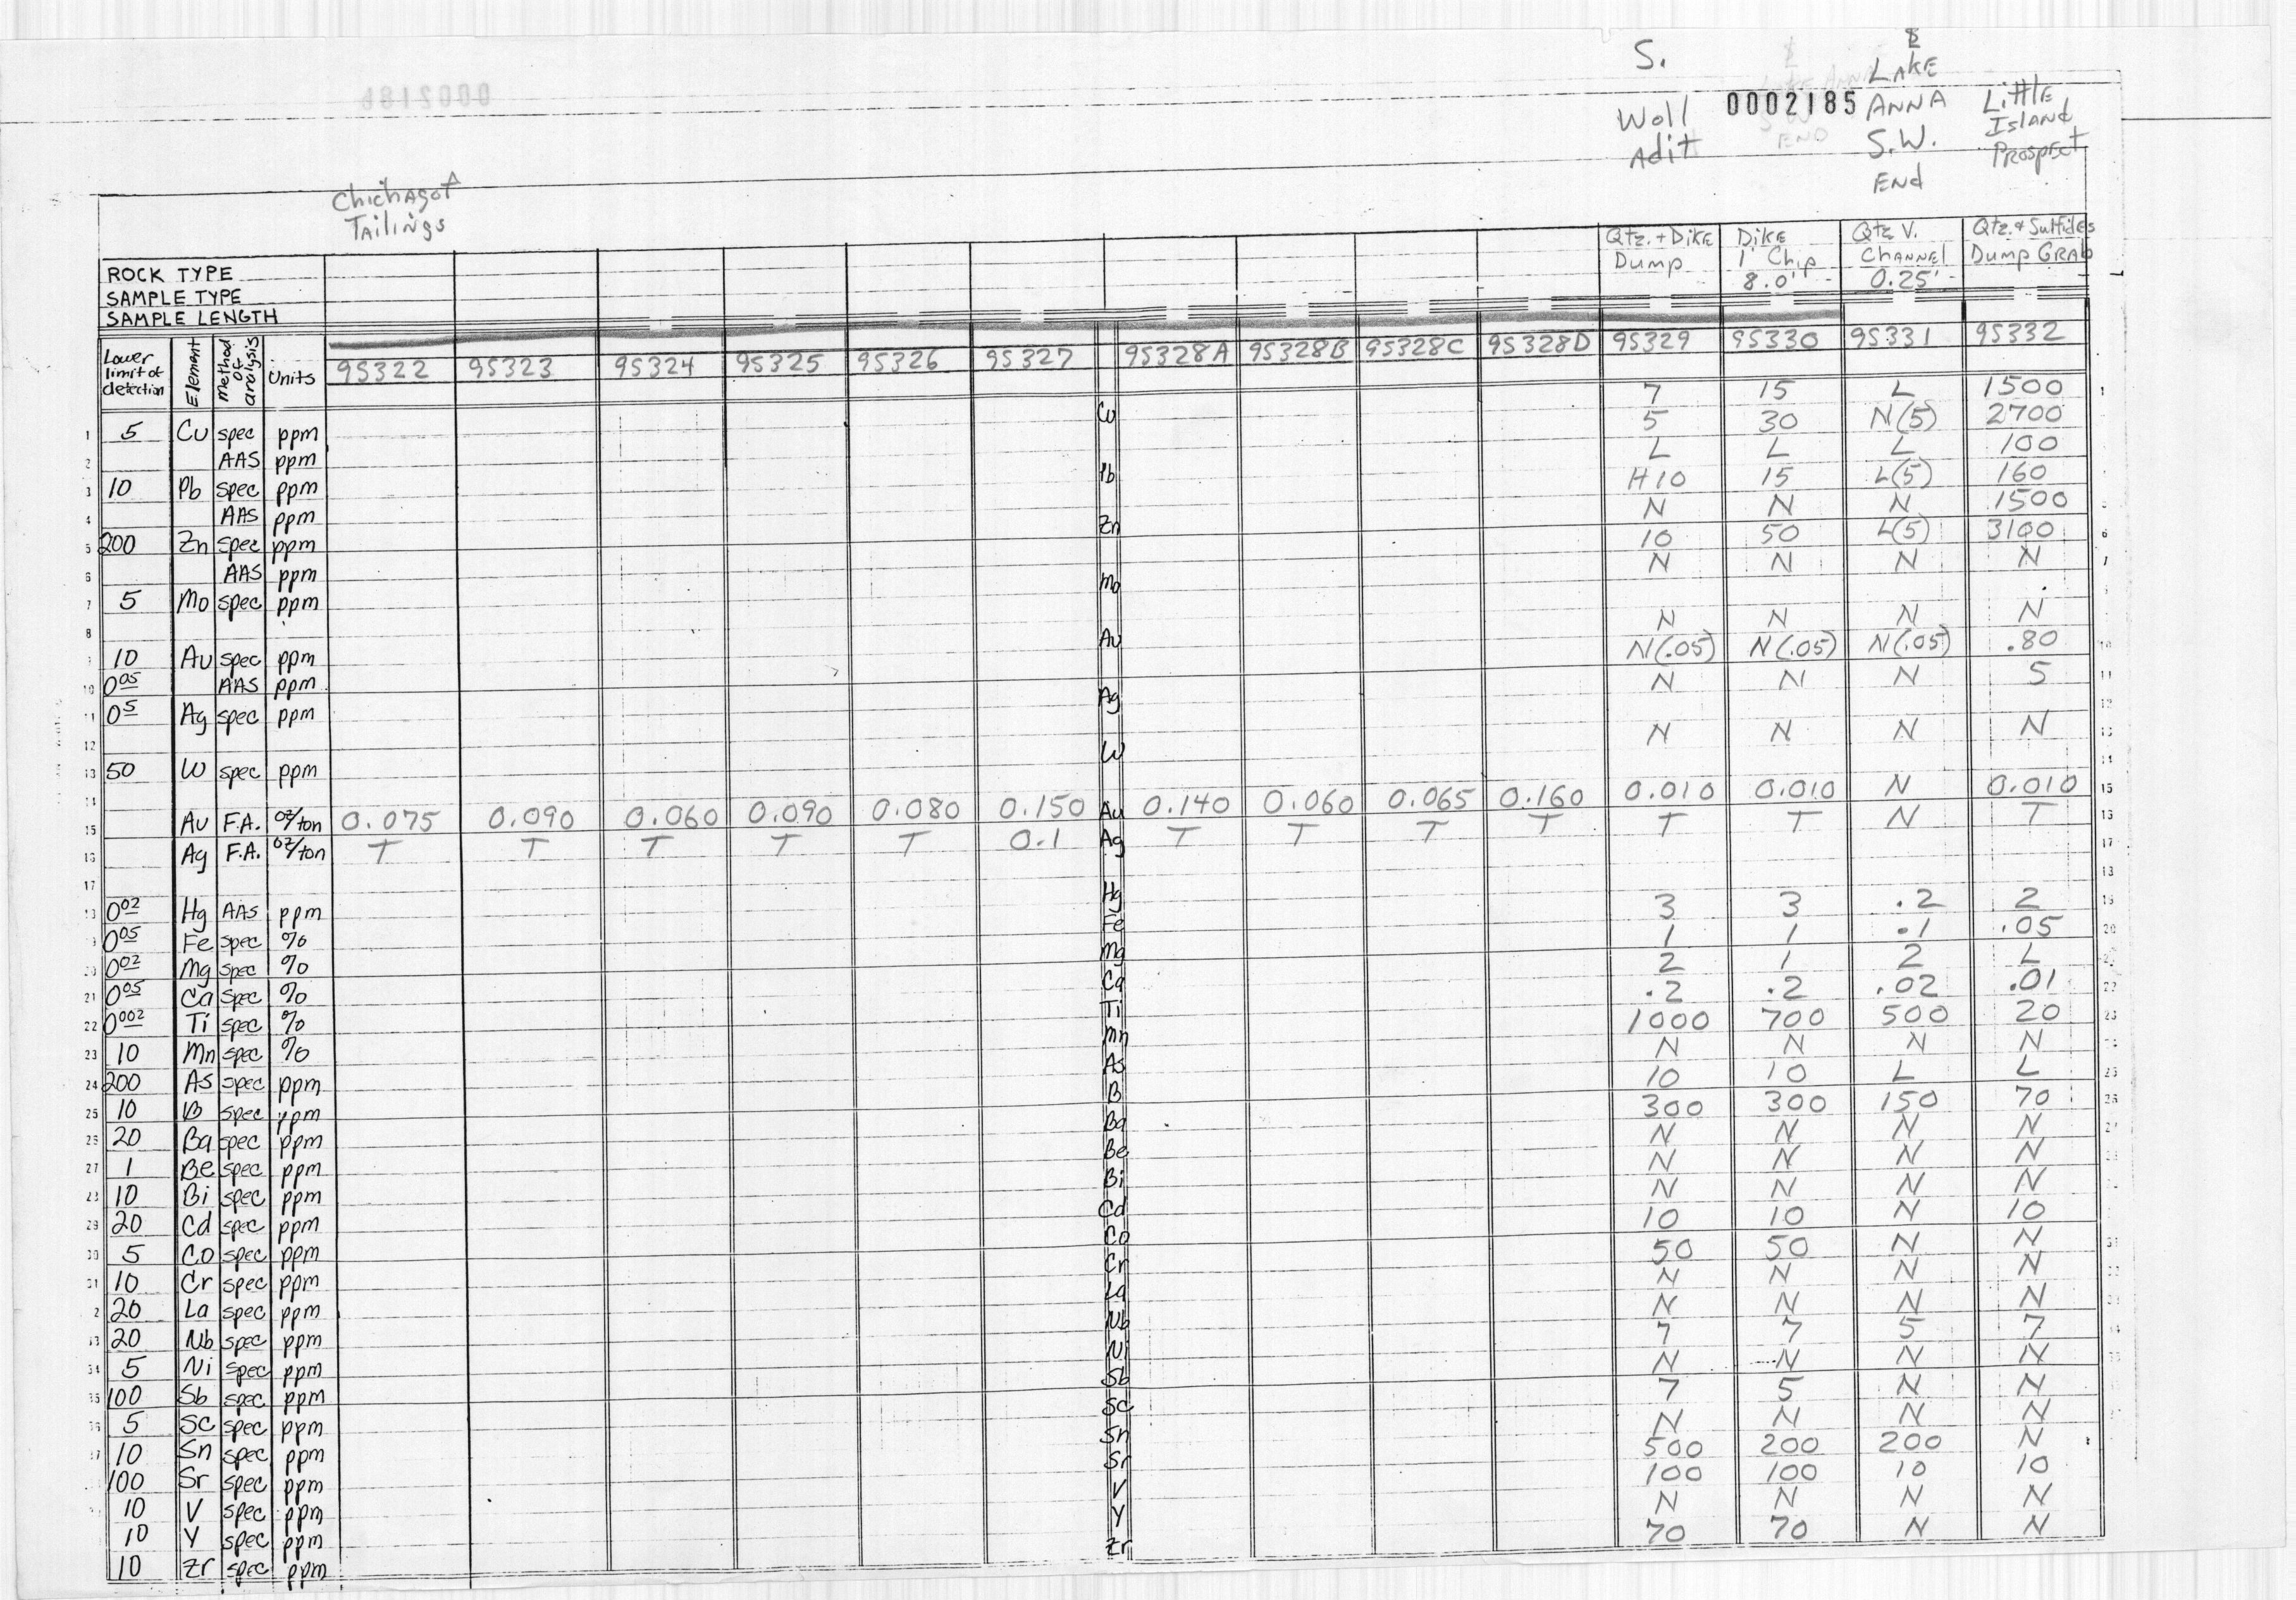 S.
Woll
Adit
0002185
&
LAKE
ANNA
S.W.
End
Little
Island
Prospect
Chichagof
Tailings
ROCK TYPE
SAMPLE TYPE
SAMPLE LENGTH
Qtz. + Dike Dump
Dike 1' Chip 8.0'
Qtz V. Channel 0.25'
Qtz. & Sulfides Dump Grab
Lower limit of detection Element Method of analysis Units 95322 95323 95324 95325 95326 95327 95328A 95328B 95328C 95328D 95329 95330 95331 95332
1 5 Cu spec ppm Cu 7 15 L 1500
2 AAS ppm 5 30 N(5) 2700
3 10 Pb spec ppm Pb L L L 100
4 AAS ppm H10 15 L(5) 160
5 200 Zn spec ppm Zn N N N 1500
6 AAS ppm 10 50 L(5) 3100
7 5 Mo spec ppm Mo N N N N
8
9 10 Au spec ppm Au N N N N
10 0.05 AAS ppm N(.05) N(.05) N(.05) .80
11 0.5 Ag spec ppm Ag N N N 5
12
13 50 W spec ppm W N N N N
14
15 Au F.A. oz/ton 0.075 0.090 0.060 0.090 0.080 0.150 Au 0.140 0.060 0.065 0.160 0.010 0.010 N 0.010
16 Ag F.A. oz/ton T T T T T 0.1 Ag T T T T T T N T
17
18 0.02 Hg AAS ppm Hg
19 0.05 Fe spec % Fe 3 3 .2 2
20 0.02 Mg spec % Mg 1 1 .1 .05
21 0.05 Ca spec % Ca 2 1 2 L
22 0.002 Ti spec % Ti .2 .2 .02 .01
23 10 Mn spec % Mn 1000 700 500 20
24 200 As spec ppm As N N N N
25 10 B spec ppm B 10 10 L L
26 20 Ba spec ppm Ba 300 300 150 70
27 1 Be spec ppm Be N N N N
28 10 Bi spec ppm Bi N N N N
29 20 Cd spec ppm Cd N N N N
30 5 Co spec ppm Co 10 10 N 10
31 10 Cr spec ppm Cr 50 50 N N
20 La spec ppm La N N N N
33 20 Nb spec ppm Nb N N N N
34 5 Ni spec ppm Ni 7 7 5 7
35 100 Sb spec ppm Sb N N N N
5 Sc spec ppm Sc 7 5 N N
10 Sn spec ppm Sn N N N N
100 Sr spec ppm Sr 500 200 200 N
10 V spec ppm V 100 100 10 10
10 Y spec ppm Y N N N N
10 Zr spec ppm Zr 70 70 N N